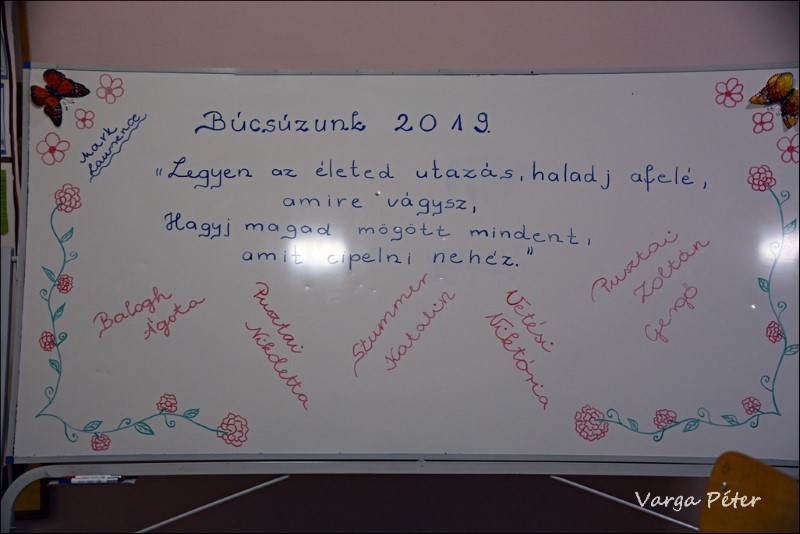 Búcsúzunk 2019.
Mark
Lawrence
"Legyen az életed utazás, haladj afelé,
amire vágysz,
Hagyj magad mögött mindent,
amit cipelni nehéz."
Balogh
Ágota
Pusztai
Nikoletta
Stummer
Katalin
Vetési
Viktória
Pusztai
Zoltán
Gergő
Varga Péter